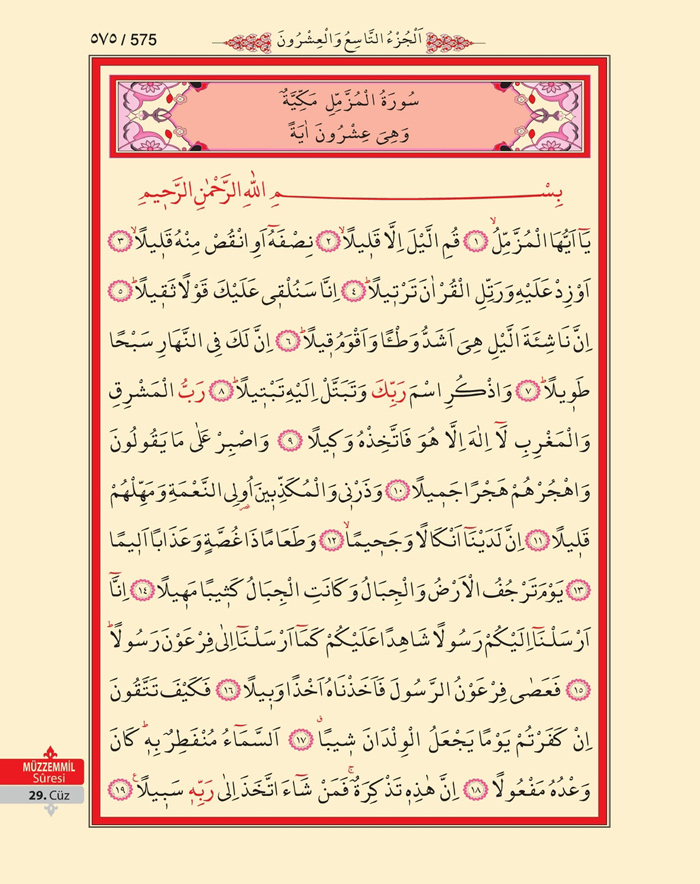 ٥٧٥ / 575
اَلْجُزْءُ التَّاسِعُ وَالْعِشْرُونَ
سُورَةُ الْمُزَّمِّلِ مَكِّيَّةٌ
وَهِىَ عِشْرُونَ اٰيَةً
بِسْــــــــــــــمِ اللّٰهِ الرَّحْمٰنِ الرَّح۪يمِ
يَٓا اَيُّهَا الْمُزَّمِّلُۙ ﴿١﴾ قُمِ الَّيْلَ اِلَّا قَل۪يلًاۙ ﴿٢﴾ نِصْفَهُٓ اَوِ انْقُصْ مِنْهُ قَل۪يلًاۙ ﴿٣﴾
اَوْ زِدْ عَلَيْهِ وَرَتِّلِ الْقُرْاٰنَ تَرْت۪يلًاۜ ﴿٤﴾ اِنَّا سَنُلْق۪ى عَلَيْكَ قَوْلًا ثَق۪يلًاۜ ﴿٥﴾
اِنَّ نَاشِئَةَ الَّيْلِ هِىَ اَشَدُّ وَطْـًٔا وَاَقْوَمُ ق۪يلًاۜ ﴿٦﴾ اِنَّ لَكَ فِى النَّهَارِ سَبْحًا
طَو۪يلًاۜ ﴿٧﴾ وَاذْكُرِ اسْمَ رَبِّكَ وَتَبَتَّلْ اِلَيْهِ تَبْت۪يلًاۜ ﴿٨﴾ رَبُّ الْمَشْرِقِ
وَالْمَغْرِبِ لَٓا اِلٰهَ اِلَّا هُوَ فَاتَّخِذْهُ وَك۪يلًا ﴿٩﴾ وَاصْبِرْ عَلٰى مَا يَقُولُونَ
وَاهْجُرْهُمْ هَجْرًا جَم۪يلًا ﴿١٠﴾ وَذَرْن۪ى وَالْمُكَذِّب۪ينَ اُو۬لِى النَّعْمَةِ وَمَهِّلْهُمْ
قَل۪يلًا ﴿١١﴾ اِنَّ لَدَيْنَٓا اَنْكَالًا وَجَح۪يمًاۙ ﴿١٢﴾ وَطَعَامًا ذَا غُصَّةٍ وَعَذَابًا اَل۪يمًا
﴿١٣﴾ يَوْمَ تَرْجُفُ الْاَرْضُ وَالْجِبَالُ وَكَانَتِ الْجِبَالُ كَث۪يبًا مَه۪يلًا ﴿١٤﴾ اِنَّٓا
اَرْسَلْنَٓا اِلَيْكُمْ رَسُولًا شَاهِدًا عَلَيْكُمْ كَمَٓا اَرْسَلْنَٓا اِلٰى فِرْعَوْنَ رَسُولًاۜ
﴿١٥﴾ فَعَصٰى فِرْعَوْنُ الرَّسُولَ فَاَخَذْنَاهُ اَخْذًا وَب۪يلًا ﴿١٦﴾ فَكَيْفَ تَتَّقُونَ
اِنْ كَفَرْتُمْ يَوْمًا يَجْعَلُ الْوِلْدَانَ ش۪يبًاۗ ﴿١٧﴾ اَلسَّمَٓاءُ مُنْفَطِرٌ بِه۪ۜ كَانَ
وَعْدُهُ مَفْعُولًا ﴿١٨﴾ اِنَّ هٰذِه۪ تَذْكِرَةٌۚ فَمَنْ شَٓاءَ اتَّخَذَ اِلٰى رَبِّه۪ سَب۪يلًا۟ ﴿١٩﴾
MÜZZEMMİL
Sûresi
29. Cüz